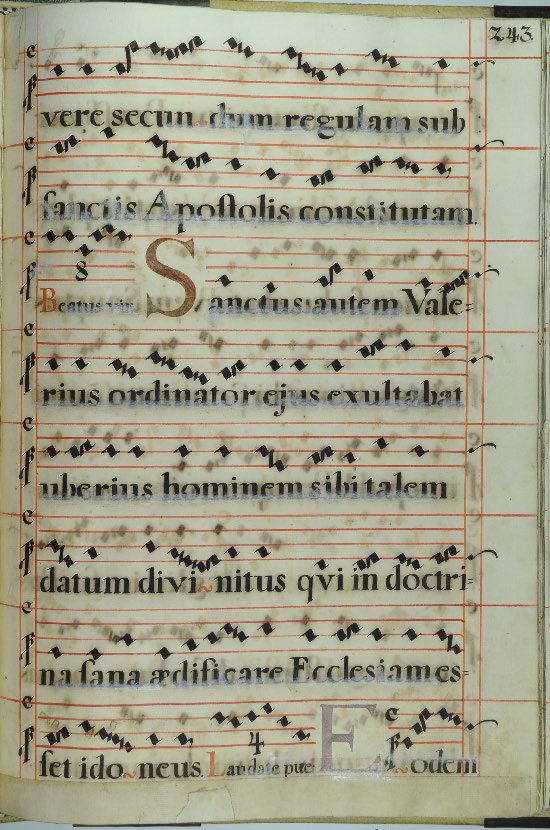 243.
vere secun dum regulam sub
sanctis Apostolis constitutam.
8
Beatus vir. Sanctus autem Vale=
rius ordinator ejus exultabat
uberius hominem sibi talem
datum divi~nitus qvi in doctri=
na sana ædificare Ecclesiam es=
set ido~neus. 4 Laudate pue E~odem